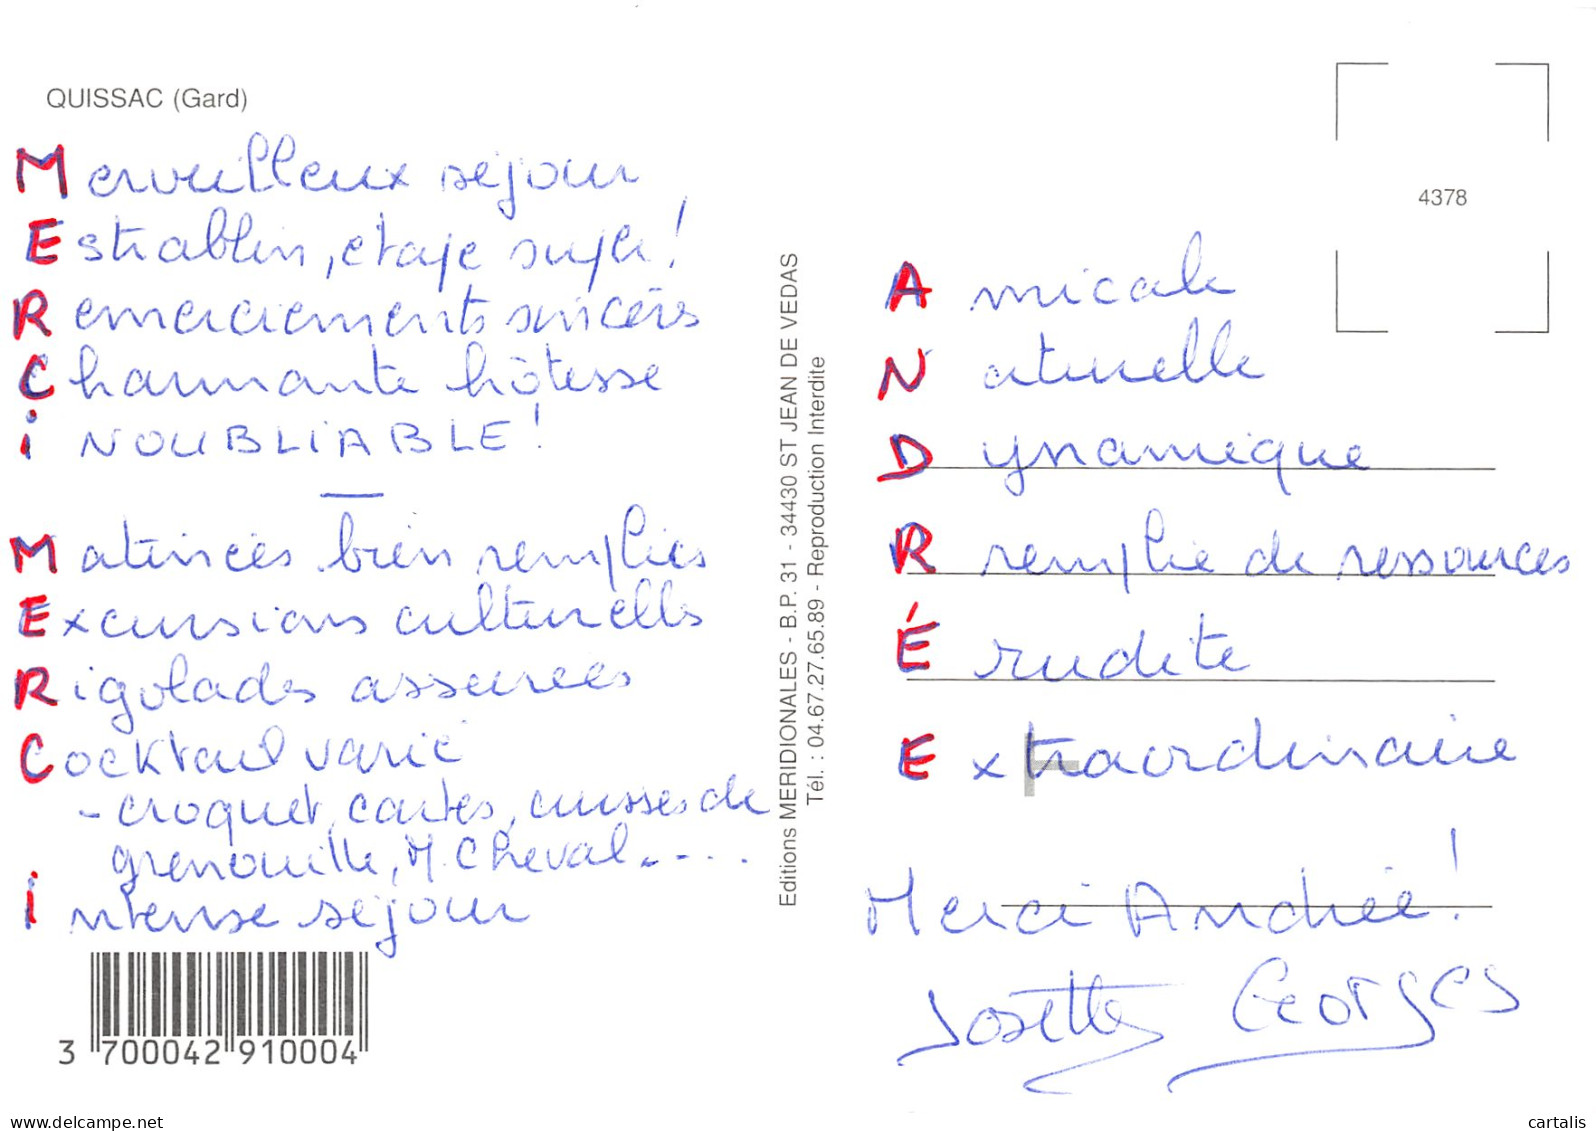 QUISSAC (Gard)
Merveilleux séjour
Establin, étape super!
Remerciements sincères
Charmante hôtesse
iNOUBLiABLE!
Matinées bien remplies
Excursions culturelles
Rigolades assurées
Cocktail varié
- croquet, cartes, cuisses de
grenouille, M. Cheval....
intense séjour
3 700042 910004
Editions MERIDIONALES - B.P. 31 - 34430 ST JEAN DE VEDAS
Tél. : 04.67.27.65.89 - Reproduction Interdite
4378
Amicale
Naturelle
Dynamique
Remplie de ressources
Érudite
Extraordinaire
Merci Andrée!
Josette Georges
my.delcampe.net
cartalis